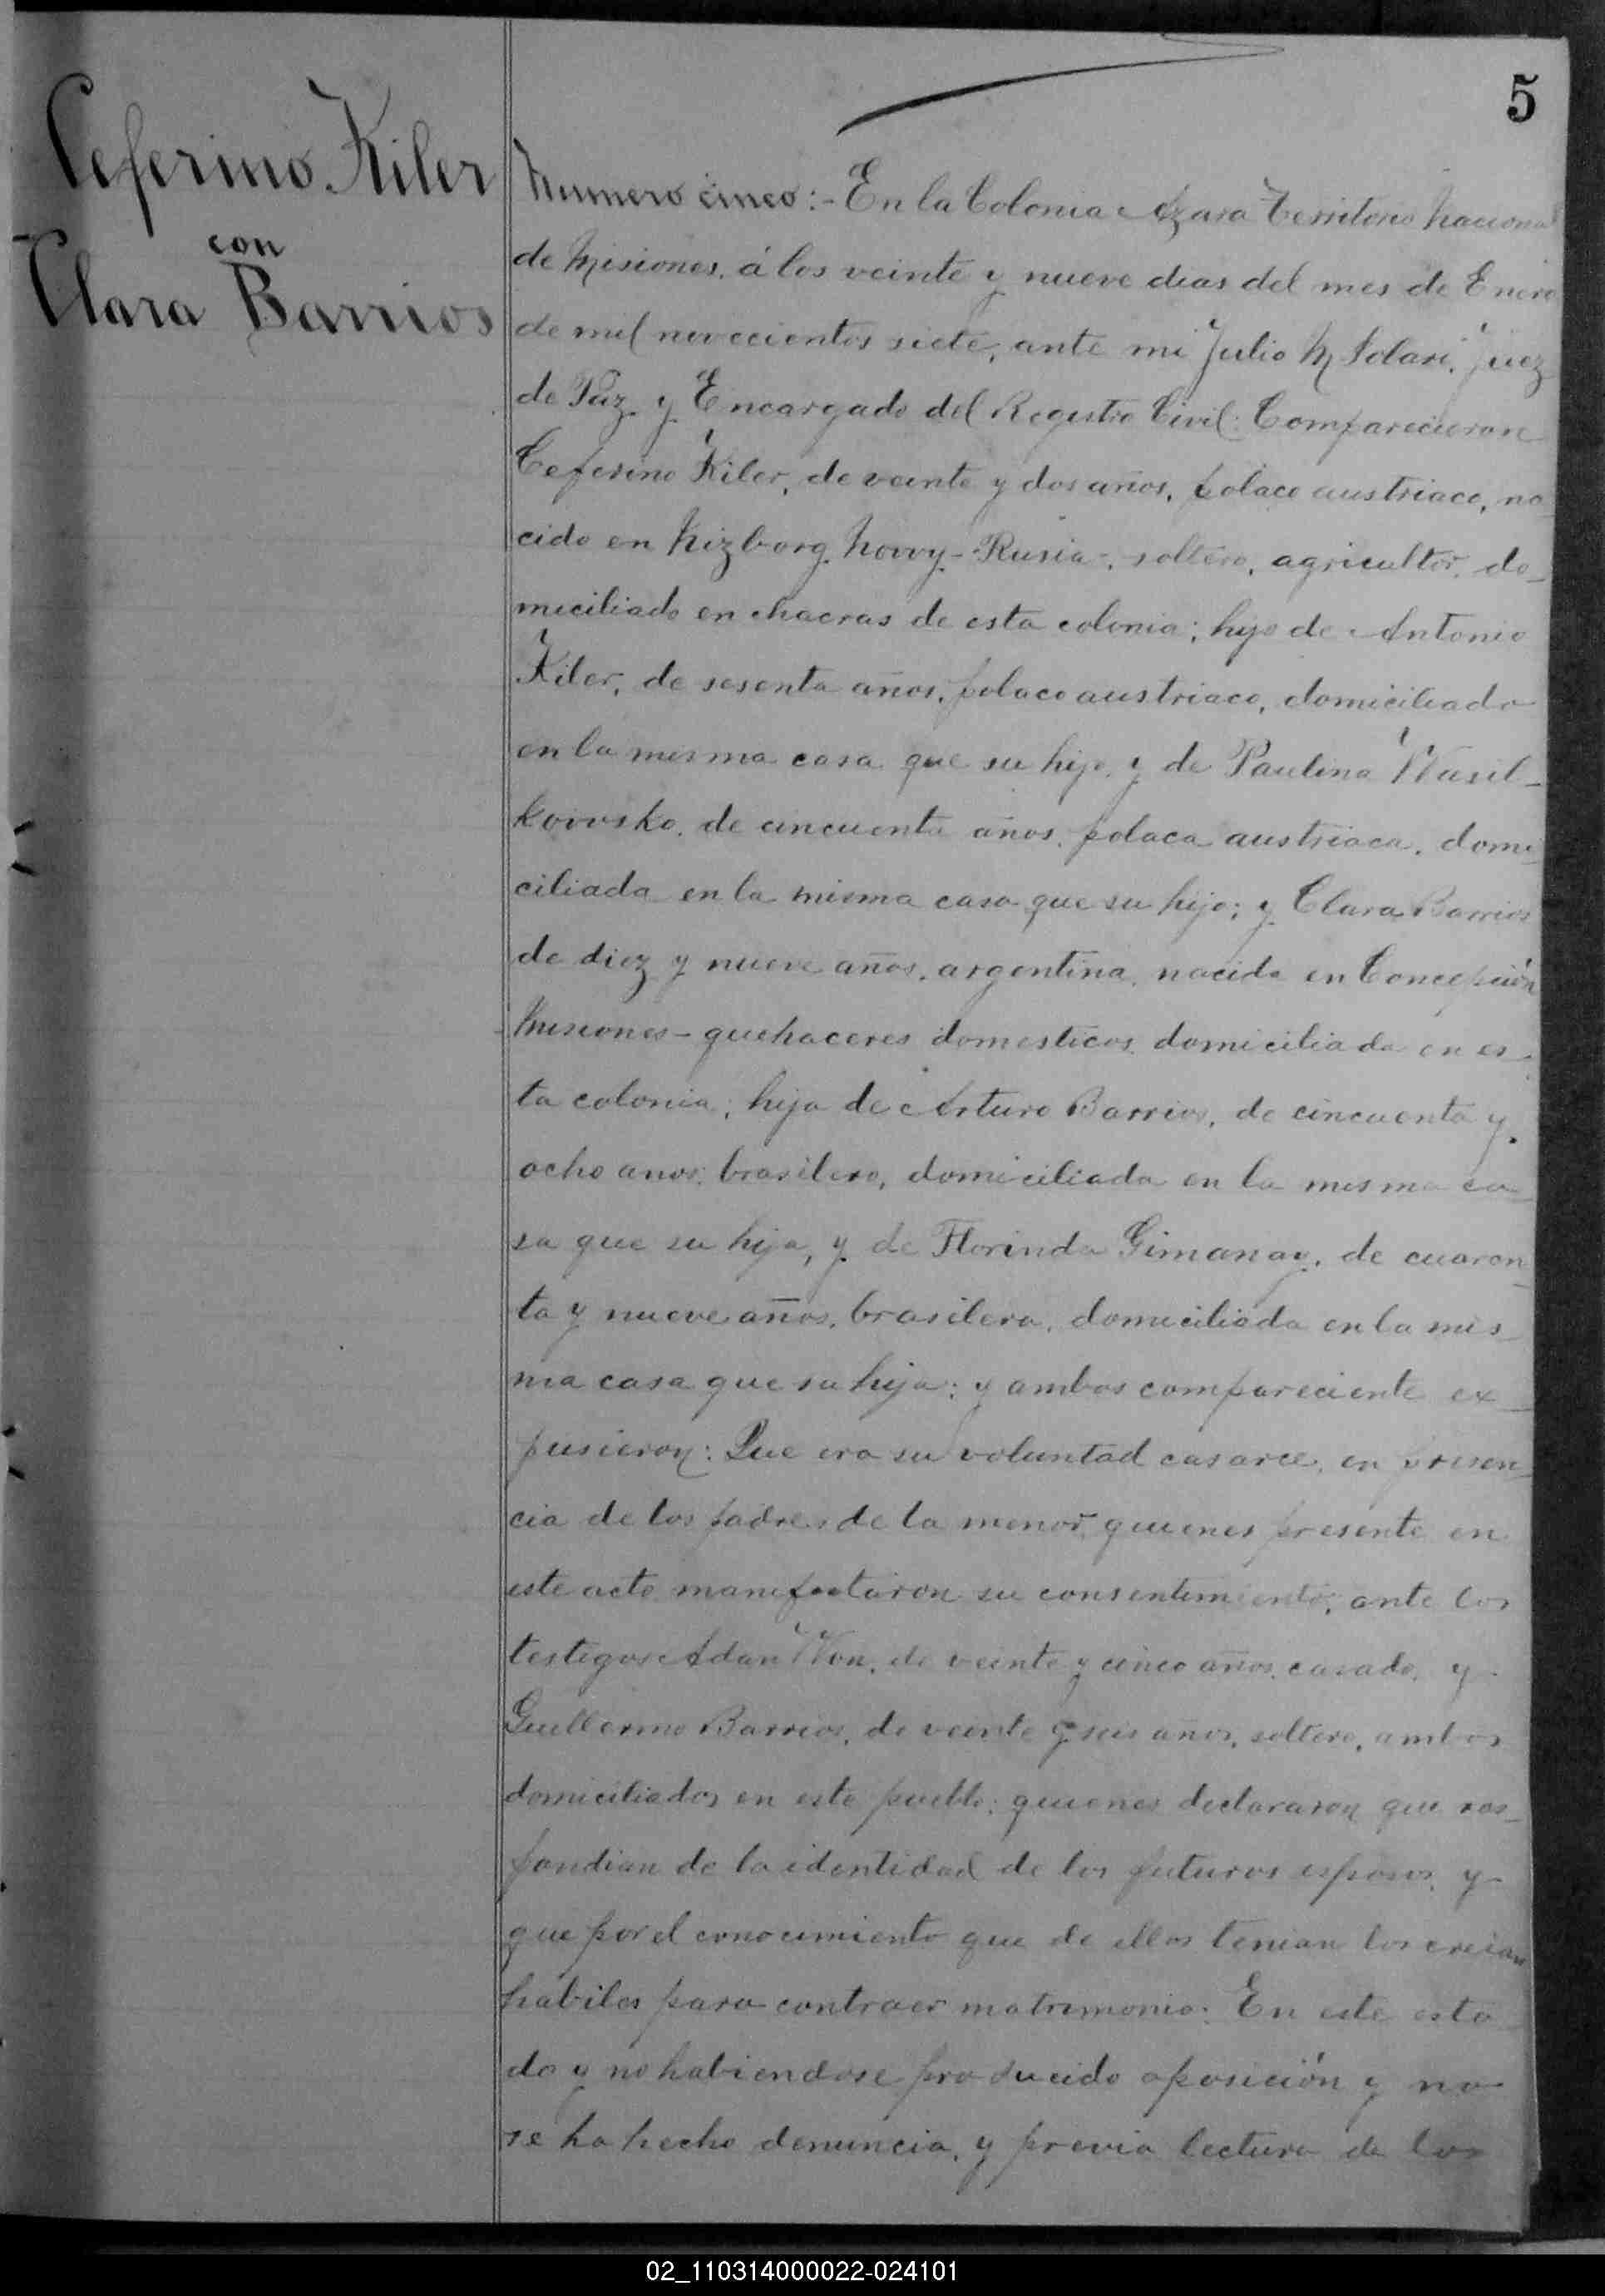 5
Ceferino Kiler
con
Clara Barrios
Numero cinco:- En la Colonia Azara Territorio Nacional
de Misiones, á los veinte y nueve dias del mes de Enero
de mil novecientos siete, ante mi Julio M Solari, Juez
de Paz y Encargado del Registro Civil: Comparecieron
Ceferino Kiler, de veinte y dos años, polaco austriaco, na
cido en Nizborg Novvy-Rusia-, soltero, agricultor, do_
miciliado en chacras de esta colonia; hijo de Antonio
Kiler, de sesenta años, polaco austriaco, domiciliado
en la misma casa que su hijo, y de Paulina Wasil_
kovvsko, de cincuenta años, polaca austriaca, domi_
ciliada en la misma casa que su hijo; y Clara Barrios
de diez y nueve años, argentina, nacida en Concepción
Misiones- quehaceres domesticos, domiciliada en es_
ta colonia; hija de Arturo Barrios, de cincuenta y
ocho anos, brasilero, domiciliada en la misma ca_
sa que su hija, y de Florinda Gimanay, de cuaren_
ta y nueve años, brasilera, domiciliada en la mis_
ma casa que su hija; y ambos compareciente ex_
pusieron: Que era su voluntad casarce, en presen_
cia de los padres de la menor, quienes presente en
este acto manifestaron su consentimiento, ante los
testigos Adan Won, de veinte y cinco años, casado, y
Guillermo Barrios, de veinte y seis años, soltero, ambos
domiciliados en este pueblo; quienes declararon que res_
pondian de la identidad de los futuros esposos, y
que por el conocimiento que de ellos tenian los creian
habiles para contraer matrimonio. En este esta_
do y no habiendose producido oposición y no
se ha hecho denuncia, y previa lectura de los
02_110314000022-024101